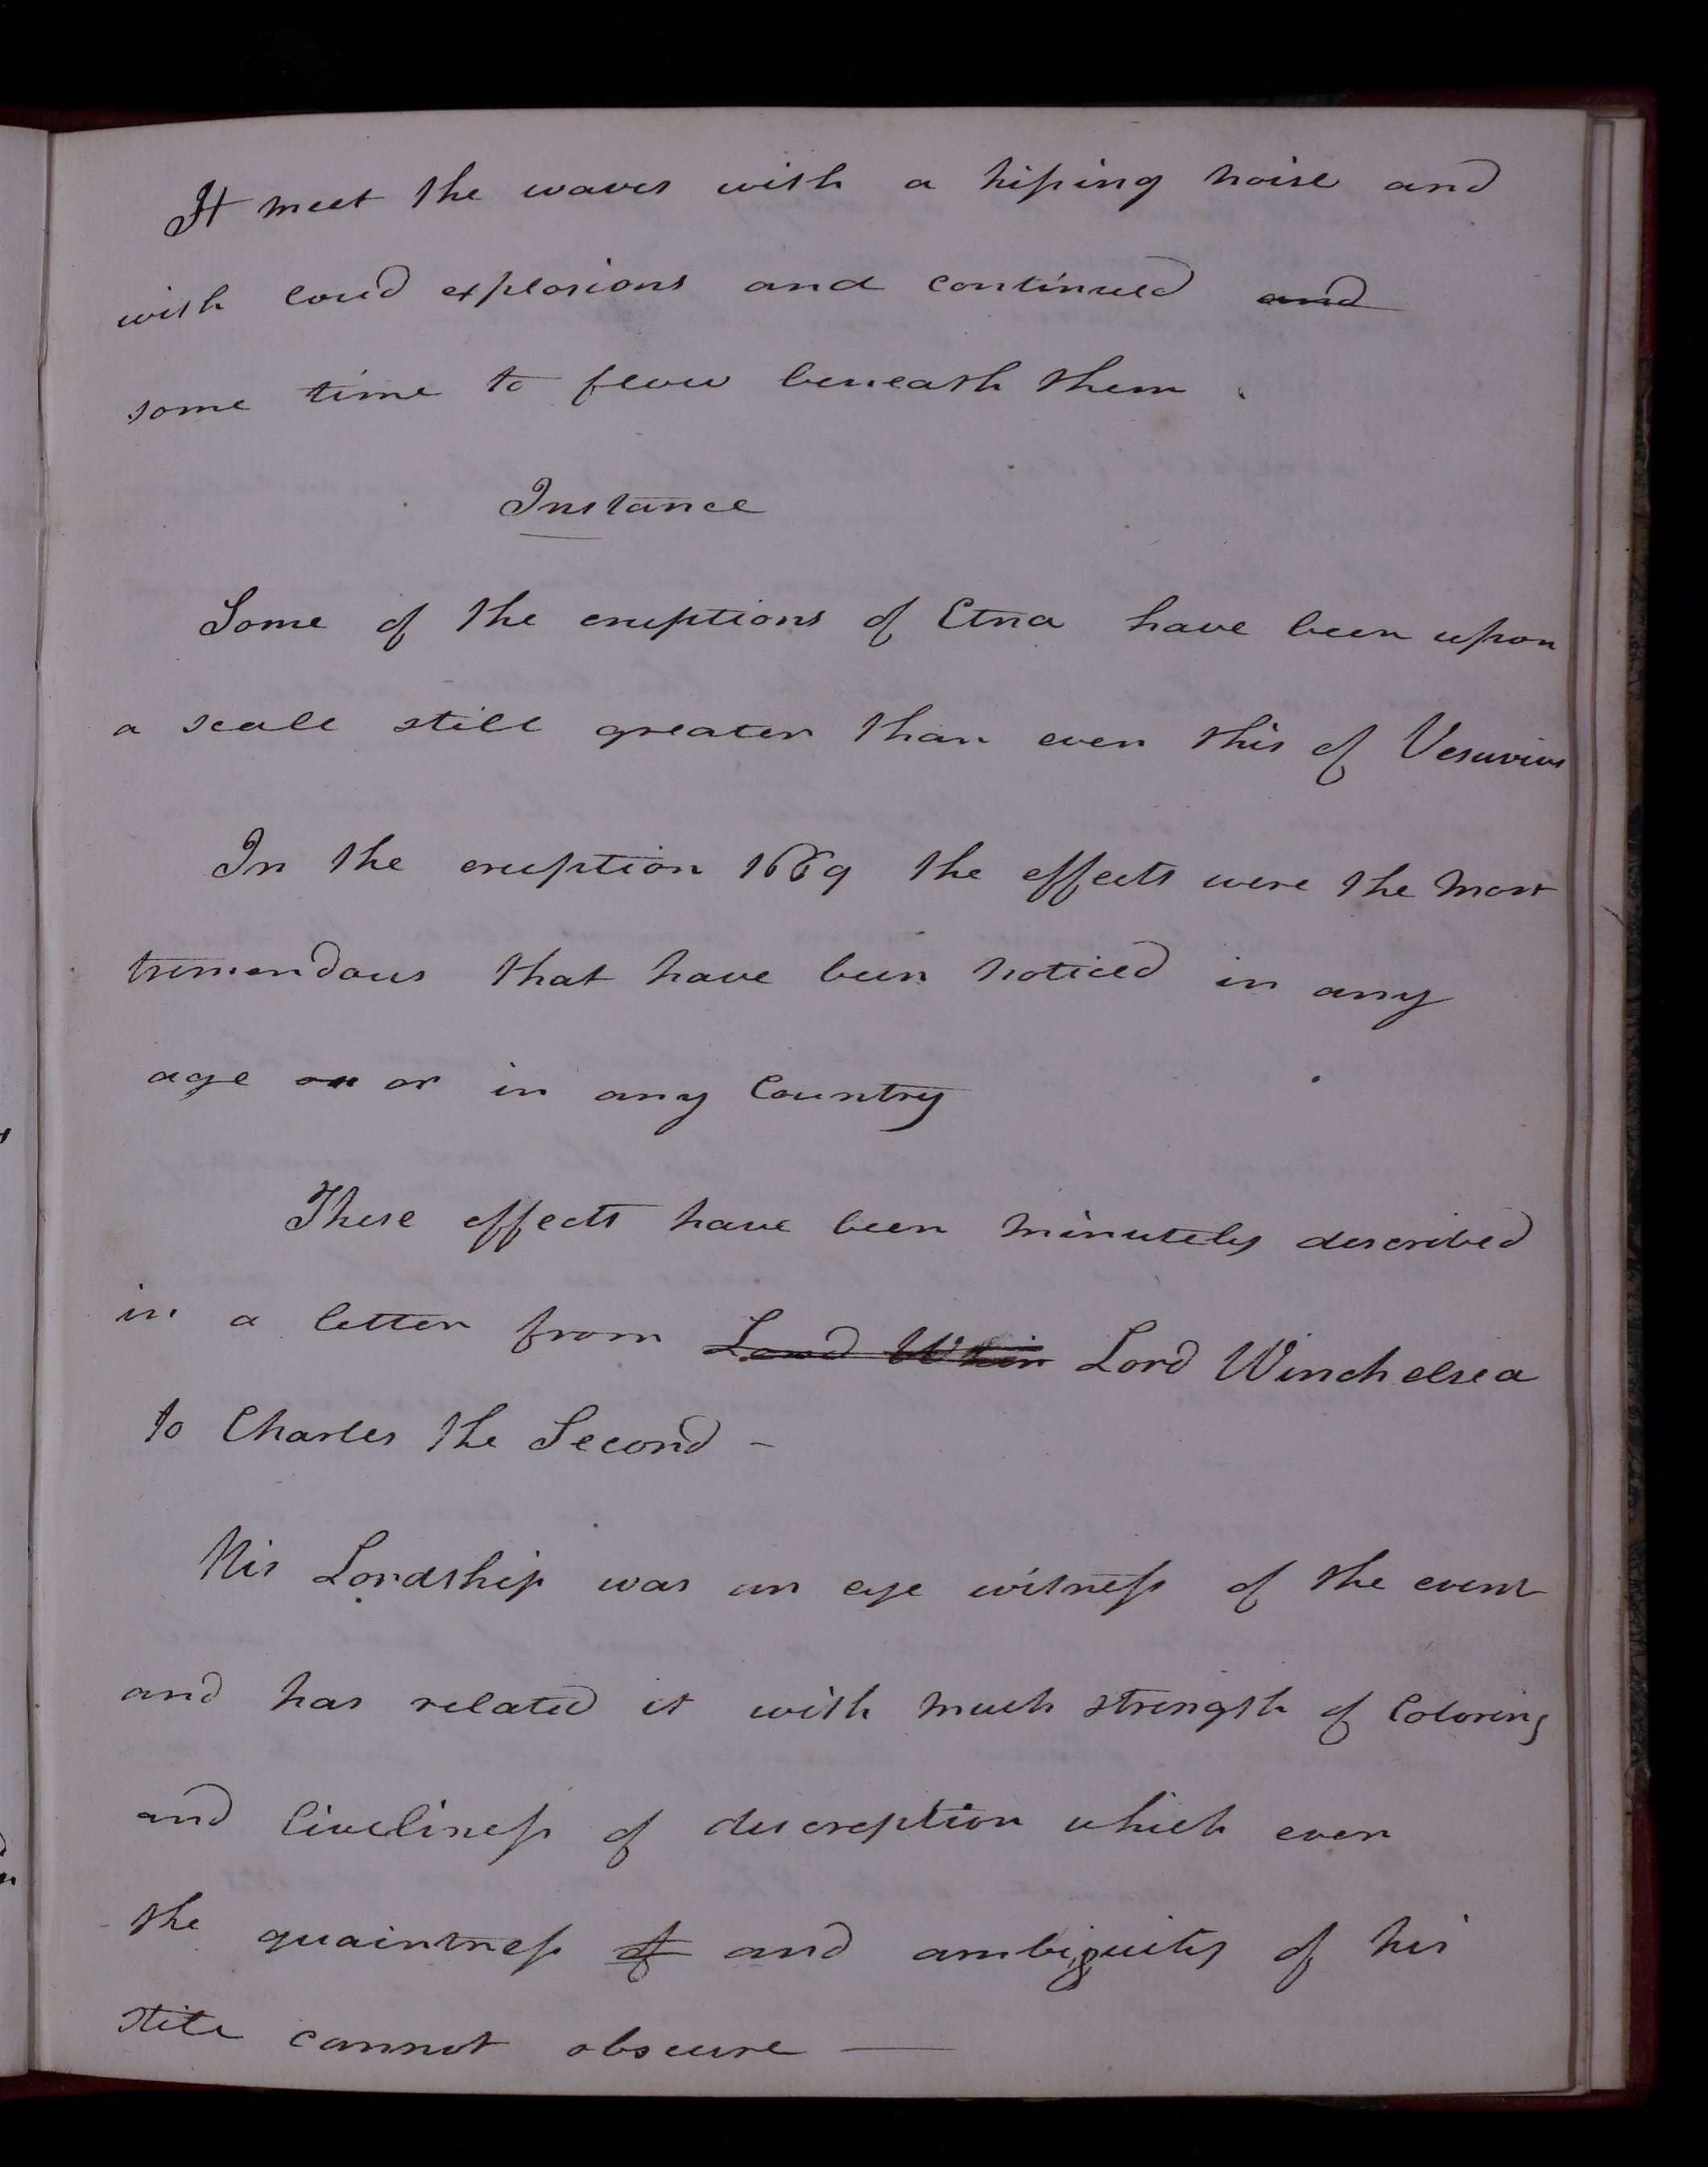 It meet the waves with a hissing noise and
with loud explosions and continued and
some time to flow beneath them.
Instance
Some of the eruptions of Etna have been upon
a scale still greater than even this of Vesuvius
In the eruption 1669 the effects were the most
tremendous that have been noticed in any
age or or in any Country
These effects have been minutely described
in a letter from Lord Winchelsea
to Charles the Second -
His Lordship was an eye witness of the event
and has related it with much strength of Coloring
and liveliness of descreption which even
the quaintness of and ambiguity of his
stile cannot obscure —